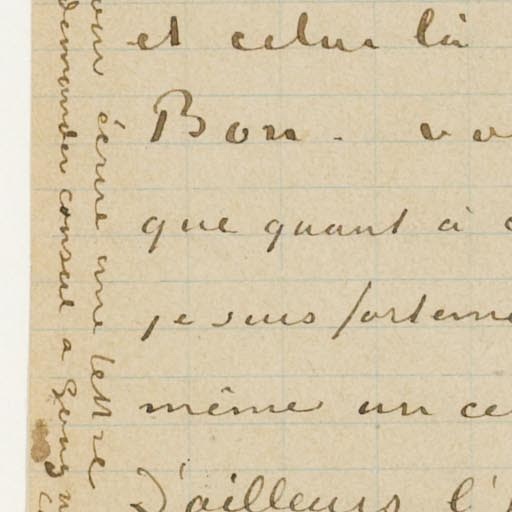 et celui là
Bon. vo
que quant à c
je suis forteme
même un ce
D'ailleurs l'
our écrire une lettre
demander conseil a